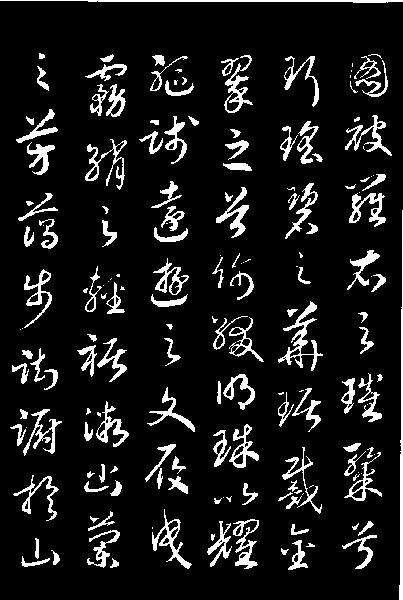 圖被羅衣之璀粲兮
珥瑤碧之華琚戴金
翠之首飾綴明珠以耀
軀踐遠遊之文履曳
霧綃之輕裾微幽蘭
之芳藹步踟躕於山